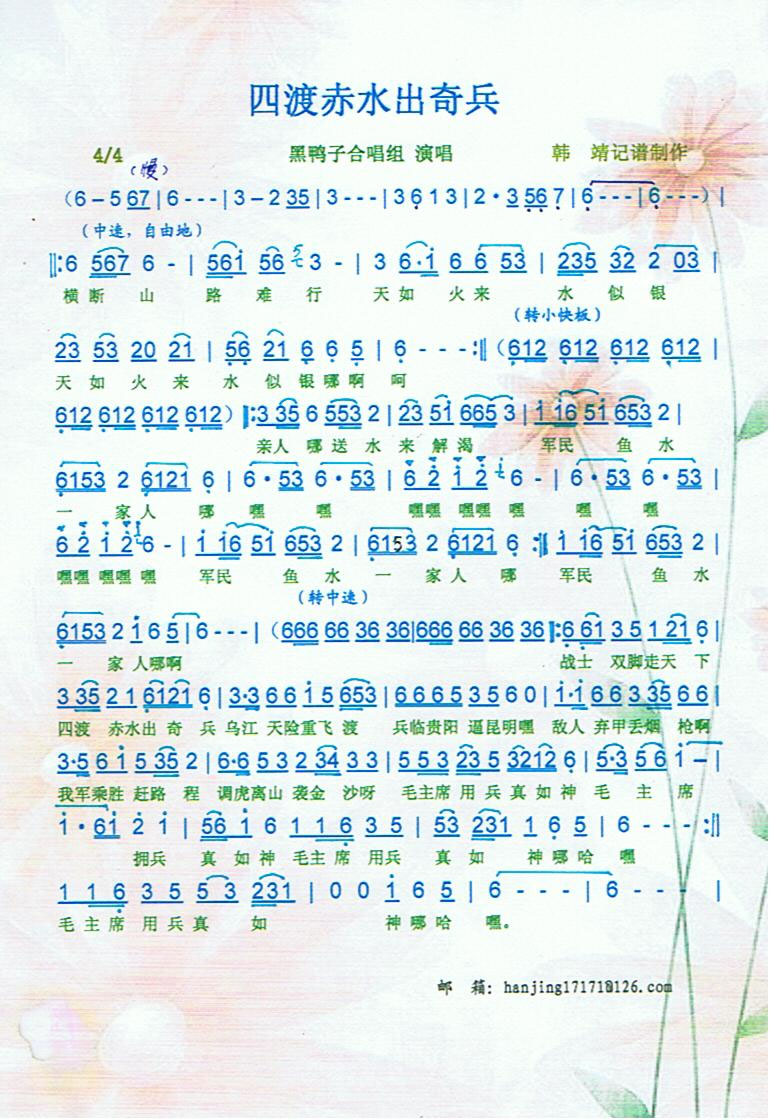 四渡赤水出奇兵
4/4 黑鸭子合唱组 演唱 韩 靖记谱制作
(慢)
(6 – 5 67 | 6 - - - | 3 – 2 35 | 3 - - - | 3 6 1 3 | 2 · 3 56 7 | 6 - - - | 6 - - - ) |
(中速，自由地)
‖: 6 567 6 - | 561 56 3 - | 3 6·1 6 6 53 | 235 32 2 03 |
横 断 山 路 难 行 天 如 火 来 水 似 银
(转小快板)
23 53 20 21 | 56 21 6 6 5 | 6 - - - :‖ (612 612 612 612 |
天 如 火 来 水 似 银 哪 啊 呵
612 612 612 612 ) ‖: 3 35 6 553 2 | 23 51 665 3 | 1 16 51 653 2 |
亲人 哪 送 水 来 解 渴 军民 鱼 水
6153 2 6121 6 | 6·53 6·53 | 6 2 1 2 6 - | 6·53 6·53 |
一 家 人 哪 嘿 嘿 嘿嘿 嘿嘿 嘿 嘿 嘿
6 2 1 2 6 - | 1 16 51 653 2 | 6153 2 6121 6 :‖ 1 16 51 653 2 |
嘿嘿 嘿嘿 嘿 军民 鱼 水 一 家 人 哪 军民 鱼 水
(转中速)
6153 2 1 6 5 | 6 - - - | (666 66 36 36|666 66 36 36 ‖: 6 61 3 5 1 21 6 |
一 家 人哪啊 战士 双脚走天 下
3 35 2 1 6121 6 | 3·3 6 6 1 5 653 | 6 6 6 5 3 5 6 0 | 1·1 6 6 3 35 6 6 |
四渡 赤水出 奇 兵 乌江 天险重飞 渡 兵临贵阳 逼昆明嘿 敌人 弃甲丢烟 枪啊
3·5 6 1 5 35 2 | 6·6 5 3 2 34 3 3 | 5 5 3 23 5 3212 6 | 5·3 56 1 – |
我军乘胜 赶路 程 调虎离山 袭金 沙呀 毛主席 用 兵 真 如 神 毛 主 席
1 · 61 2 1 | 56 1 6 1 1 6 3 5 | 53 231 1 6 5 | 6 - - - :‖
拥兵 真 如 神 毛主 席 用兵 真 如 神 哪 哈 嘿
1 1 6 3 5 5 3 231 | 0 0 1 6 5 | 6 - - - | 6 - - - |
毛 主 席 用 兵 真 如 神 哪 哈 嘿。
邮 箱: hanjing171710126.com